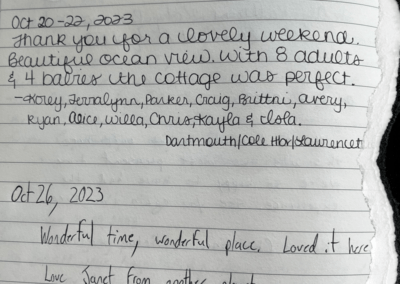 Oct 20-22, 2023
Thank you for a lovely weekend.
Beautiful ocean view. With 8 adults
& 4 babies the cottage was perfect.
-Korey, Jerralynn, Parker, Craig, Brittni, Avery,
Ryan, Alice, Willa, Chris, Kayla & Isla.
Dartmouth/Cole Hbr/
Oct 26, 2023
Wonderful time, wonderful place. Loved it here
Love Janet from another